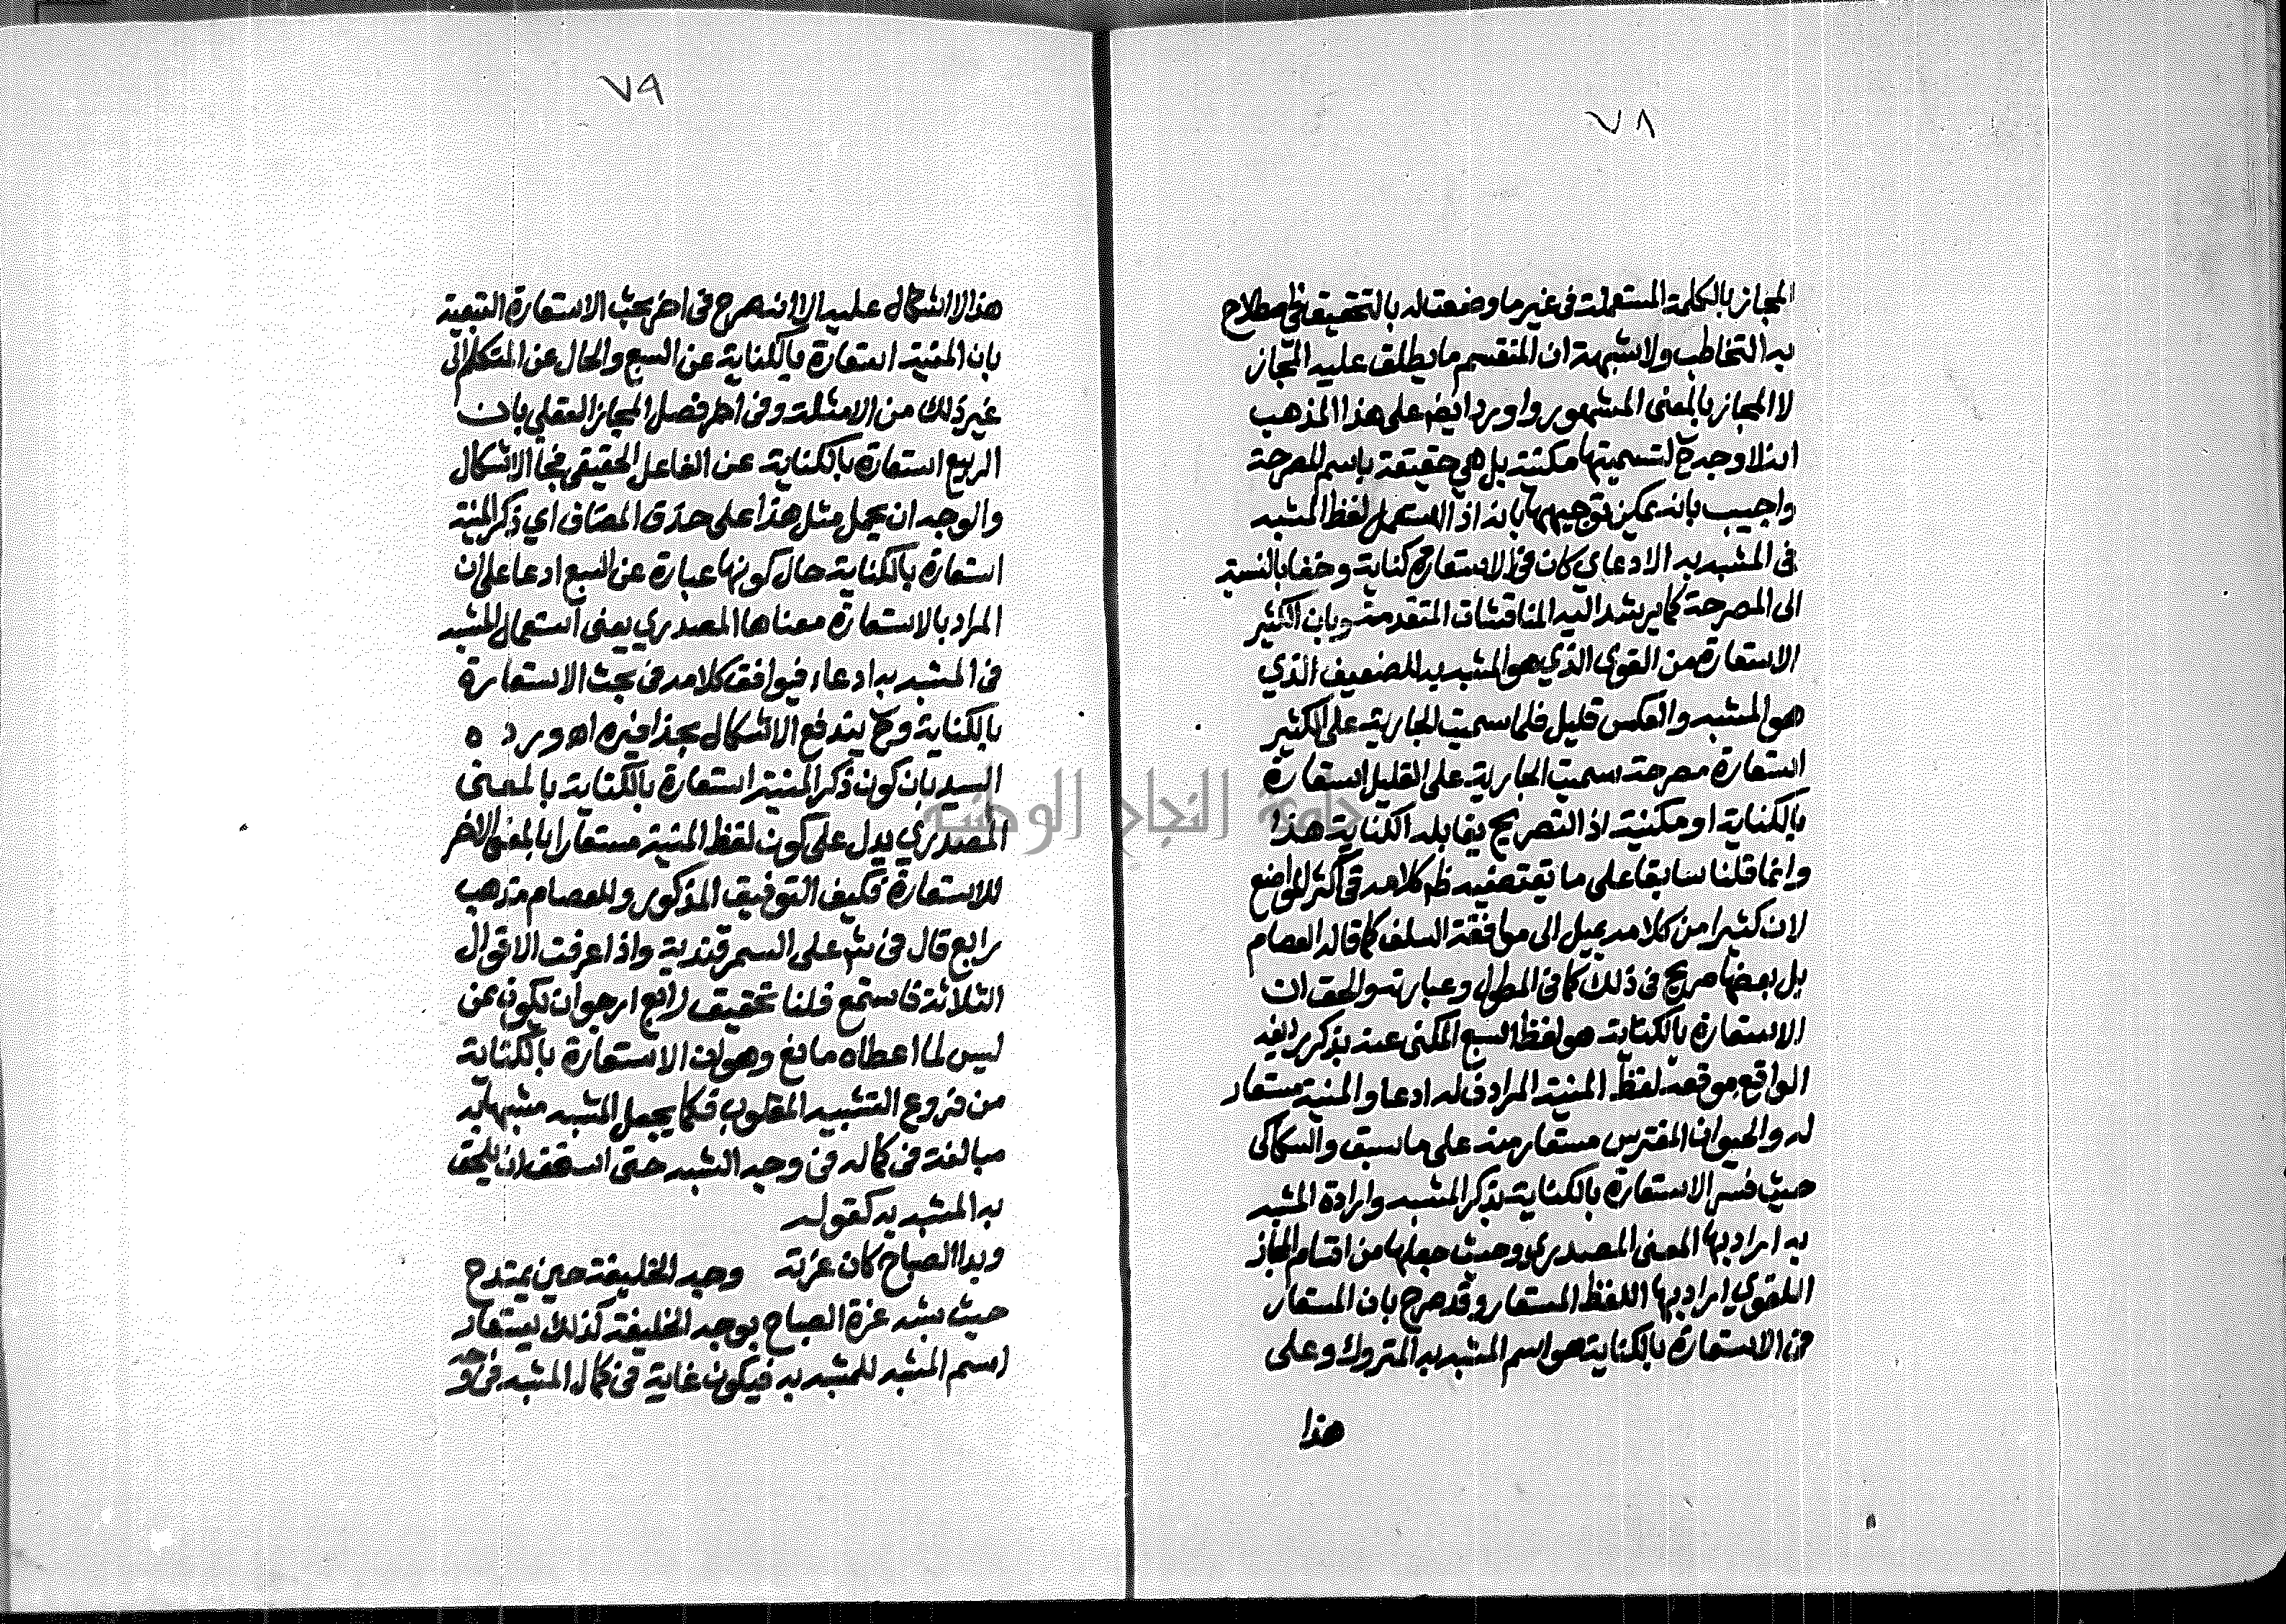 ٧٨
المجاز بالكلمة المستعملة في غير ما وضعت له بالتحقيق في اصطلاح
به التخاطب ولا شبهة ان المنقسم ما يطلق عليه المجاز
لا المجاز بالمعنى المشهور واورد ايض على هذا المذهب
انه لا وجه ح لتسميتها مكنية بل هي حقيقة باسم المصرحة
واجيب بانه يمكن توجيهها بانه اذا استعمل لفظ المشبه
في المشبه به الادعاي كان في الاستعارة كناية وخفا بالنسبة
الى المصرحة كما يرشد اليه المناقشات المتقدمة وبان الكثير
الاستعارة من القوى الذي هو المشبه به للضعيف الذي
هو المشبه والعكس قليل فلما سميت الجارية على الكثير
استعارة مصرحة سميت الجارية على القليل استعارة
بالكناية او مكنية اذ التصريح يقابله الكناية هذا
وانما قلنا سابقا على ما تقتضيه ظم كلامه في اكثر المواضع
لان كثيرا من كلامه يميل الى موافقة السلف كما قاله العصام
بل بعضها صريح في ذلك كما في المطول وعبارته والحق ان
الاستعارة بالكناية هو لفظ السبع المكنى عنه بذكر رديفه
الواقع موقعه لفظ المنية المرادف له ادعا والمنية مستعار
له والحيوان المفترس مستعار منه على ما سبق والسكاكى
حيث فسر الاستعارة بالكناية بذكر المشبه وارادة المشبه
به اراد بها المعنى المصدري وحيث جعلها من اقسام المجاز
اللغوي اراد بها اللفظ المستعار وقد صرح بان المستعار
في الاستعارة بالكناية هو اسم المشبه به المتروك وعلى
هذا
٧٩
هذا الاشكال عليه الا انه صرح في اخر بحث الاستعارة التبعية
بان المنية استعارة بالكناية عن السبع والحال عن المتكلم الى
غير ذلك من الامثلة وفي اخر فصل المجاز العقلي بان
الربيع استعارة بالكناية عن الفاعل الحقيقي فجا الاشكال
والوجه ان يحمل مثل هذا على حذف المضاف اي ذكر المنية
استعارة بالكناية حال كونها عبارة عن السبع ادعا على ان
المراد بالاستعارة معناها المصدري يعنى استعمال المشبه
في المشبه به ادعاء فيوافق كلامه في بحث الاستعارة
بالكناية وح يندفع الاشكال بحذافيره اه ورد ه
السيد بان كون ذكر المنية استعارة بالكناية بالمعنى
المصدري يدل على كون لفظ المنية مستعارا بالمعنى الاخر
للاستعارة فكيف التوفيق المذكور وللعصام مذهب
رابع قال في شم على السمرقندية واذا عرفت الاقوال
الثلاثة فاستمع قلنا تحقيق رابع ارجوان يكون ممن
ليس لما اعطاه مانع وهو ان الاستعارة بالكناية
من فروع التشبيه المقلوب فكما يجعل المشبه مشبها به
مبالغة في كماله في وجه الشبه حتى استحق ان يلحق
به المشبه به كقوله
وبدا الصباح كان غرته وجه الخليفة حين يمتدح
حيث شبه غرة الصباح بوجه الخليفة كذلك يستعار
اسم المشبه للمشبه به فيكون غاية في كمال المشبه في
جامعة النجاح الوطنية